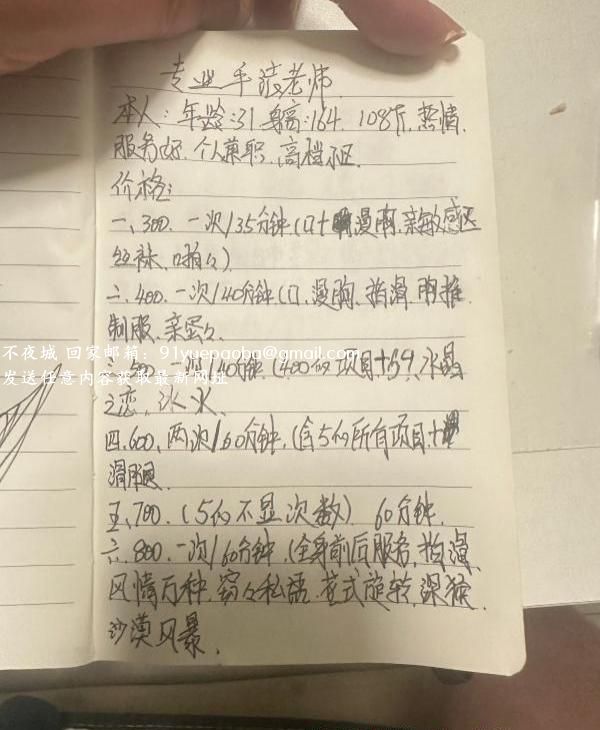 专业手法老师
本人:年龄:31.身高:164.108斤,热情.
服务好.个人兼职.高档小区.
价格:
一、300.一次/35分钟(口+漫雨,亲敏感区
丝袜、啪々)
二、400.一次/40分钟(口、漫胸、指滑、胸推
制服、亲蛋々、
不夜城 回家邮箱:91yuepaoba@gmail.com
三、500、一次/40分钟(400的项目+69、水晶
发送任意内容获取最新网址
之恋、冰火、
四、600、两次/60分钟、(含5的所有项目+
滑腿
五、700.(5的不显次数)60分钟.
六、800.一次/60分钟.(全身前后服务、指漫、
风情万种、窃々私语、花式旋转、深猴、
沙漠风暴、